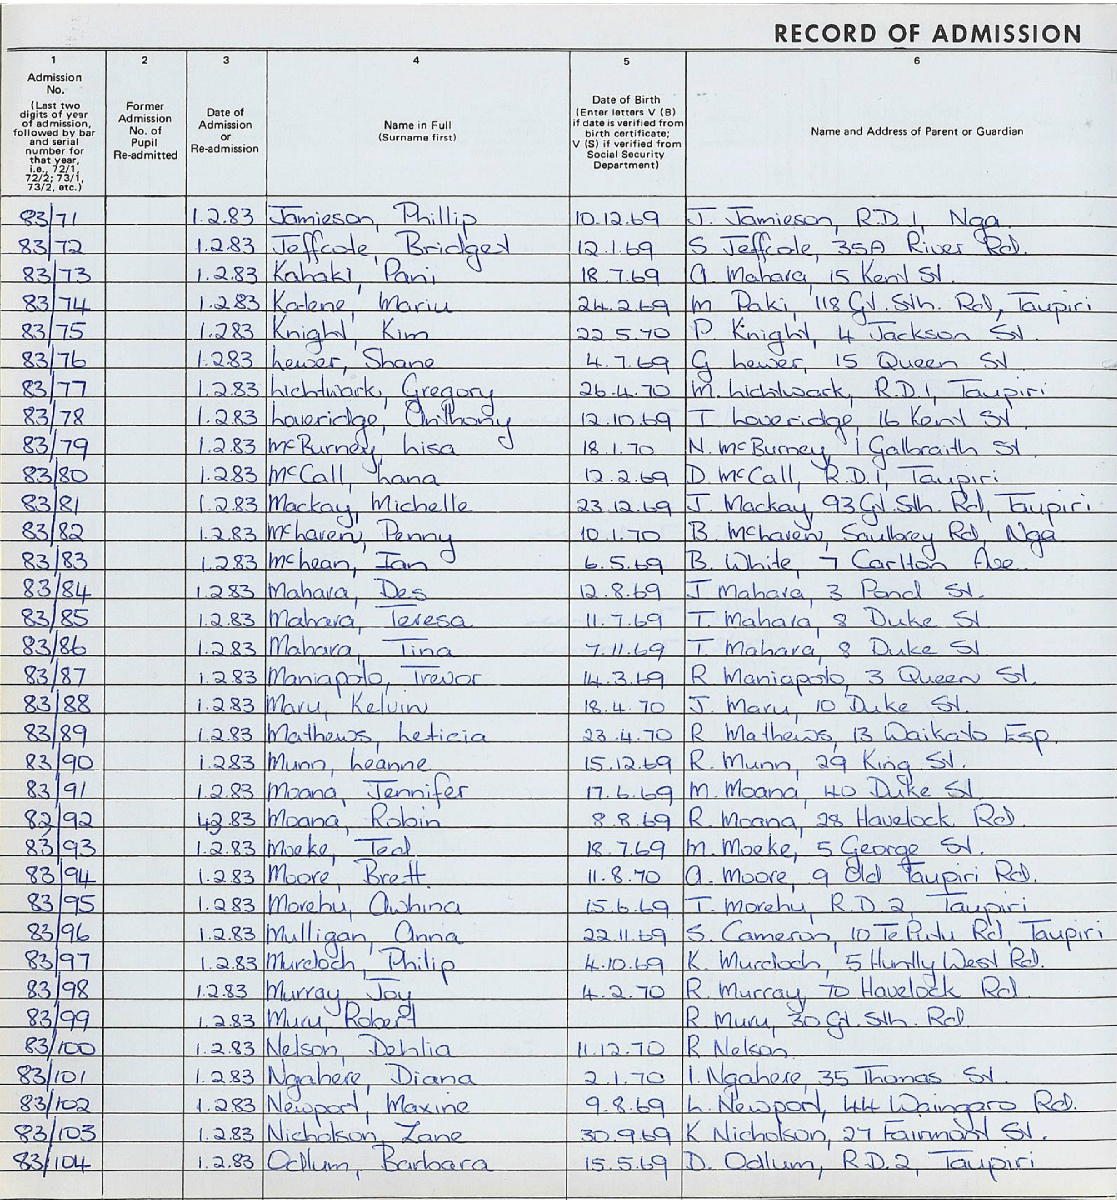 RECORD OF ADMISSION
1 2 3 4 5 6
Admission No. (Last two digits of year of admission, followed by bar and serial number for that year, i.e., 72/1, 72/2; 73/1, 73/2, etc.)
Former Admission No. of Pupil Re-admitted
Date of Admission or Re-admission
Name in Full (Surname first)
Date of Birth (Enter letters V (B) if date is verified from birth certificate; V (S) if verified from Social Security Department)
Name and Address of Parent or Guardian
83/71 1.2.83 Jamieson, Phillip 10.12.69 J. Jamieson, R.D.1, Nga
83/72 1.2.83 Jeffcote, Bridget 12.1.69 S Jeffcote, 35A River Rd.
83/73 1.2.83 Kahaki, Pani 18.7.69 A. Mahara, 15 Kent St.
83/74 1.2.83 Katene, Mariu 24.2.69 M Paki, 118 Gt. Sth. Rd, Taupiri
83/75 1.2.83 Knight, Kim 22.5.70 P. Knight, 4 Jackson St
83/76 1.2.83 Lewer, Shane 4.7.69 G Lewer, 15 Queen St
83/77 1.2.83 Lichtwark, Gregory 26.4.70 M. Lichtwark, R.D.1, Taupiri
83/78 1.2.83 Loveridge, Anthony 12.10.69 T Loveridge, 16 Kent St.
83/79 1.2.83 McBurney, Lisa 18.1.70 N. McBurney, 1 Galbraith St
83/80 1.2.83 McCall, Lana 12.2.69 D. McCall, R.D.1, Taupiri
83/81 1.2.83 Mackay, Michelle 23.12.69 J. Mackay, 93 Gt. Sth. Rd, Taupiri
83/82 1.2.83 McLaren, Penny 10.1.70 B. McLaren, Rd, Nga
83/83 1.2.83 McLean, Ian 6.5.69 B. White, 7 Carlton Ave.
83/84 1.2.83 Mahara, Des 12.8.69 J Mahara, 3 Pond St.
83/85 1.2.83 Mahara, Teresa 11.7.69 T. Mahara, 8 Duke St
83/86 1.2.83 Mahara, Tina 7.11.69 T. Mahara, 8 Duke St
83/87 1.2.83 Maniapoto, Trevor 14.3.69 R Maniapoto, 3 Queen St.
83/88 1.2.83 Maru, Kelvin 18.4.70 J. Maru, 10 Duke St.
83/89 1.2.83 Mathews, Leticia 23.4.70 R Mathews, 13 Waikato Esp.
83/90 1.2.83 Munn, Leanne 15.12.69 R. Munn, 29 King St.
83/91 1.2.83 Moana, Jennifer 17.6.69 M. Moana, 40 Duke St.
82/92 Moana, Robin 8.8.69 R. Moana, 28 Havelock Rd.
83/93 1.2.83 Moeke, Ted 18.7.69 M. Moeke, 5 George St.
83/94 1.2.83 Moore, Brett. 11.8.70 A. Moore, 9 Old Taupiri Rd.
83/95 1.2.83 Morehu, Awhina 15.6.69 T. Morehu, R.D.2, Taupiri
83/96 1.2.83 Mulligan, Anna 22.11.69 S. Cameron, 10 Te Putu Rd, Taupiri
83/97 1.2.83 Murdoch, Philip 4.10.69 K. Murdoch, 5 Huntly West Rd.
83/98 1.2.83 Murray, Joy 4.2.70 R. Murray, 70 Havelock Rd
83/99 1.2.83 Muru, Robert R Muru, 30 Gt. Sth. Rd.
83/100 1.2.83 Nelson, Dehlia 11.12.70 R Nelson
83/101 1.2.83 Ngahere, Diana 2.1.70 I. Ngahere, 35 Thomas St.
83/102 1.2.83 Newport, Maxine 9.8.69 L. Newport, 44 Waingaro Rd.
83/103 1.2.83 Nicholson, Zane 30.9.69 K Nicholson, 27 Fairmont St.
83/104 1.2.83 Odlum, Barbara 15.5.69 D. Odlum, R.D.2, Taupiri